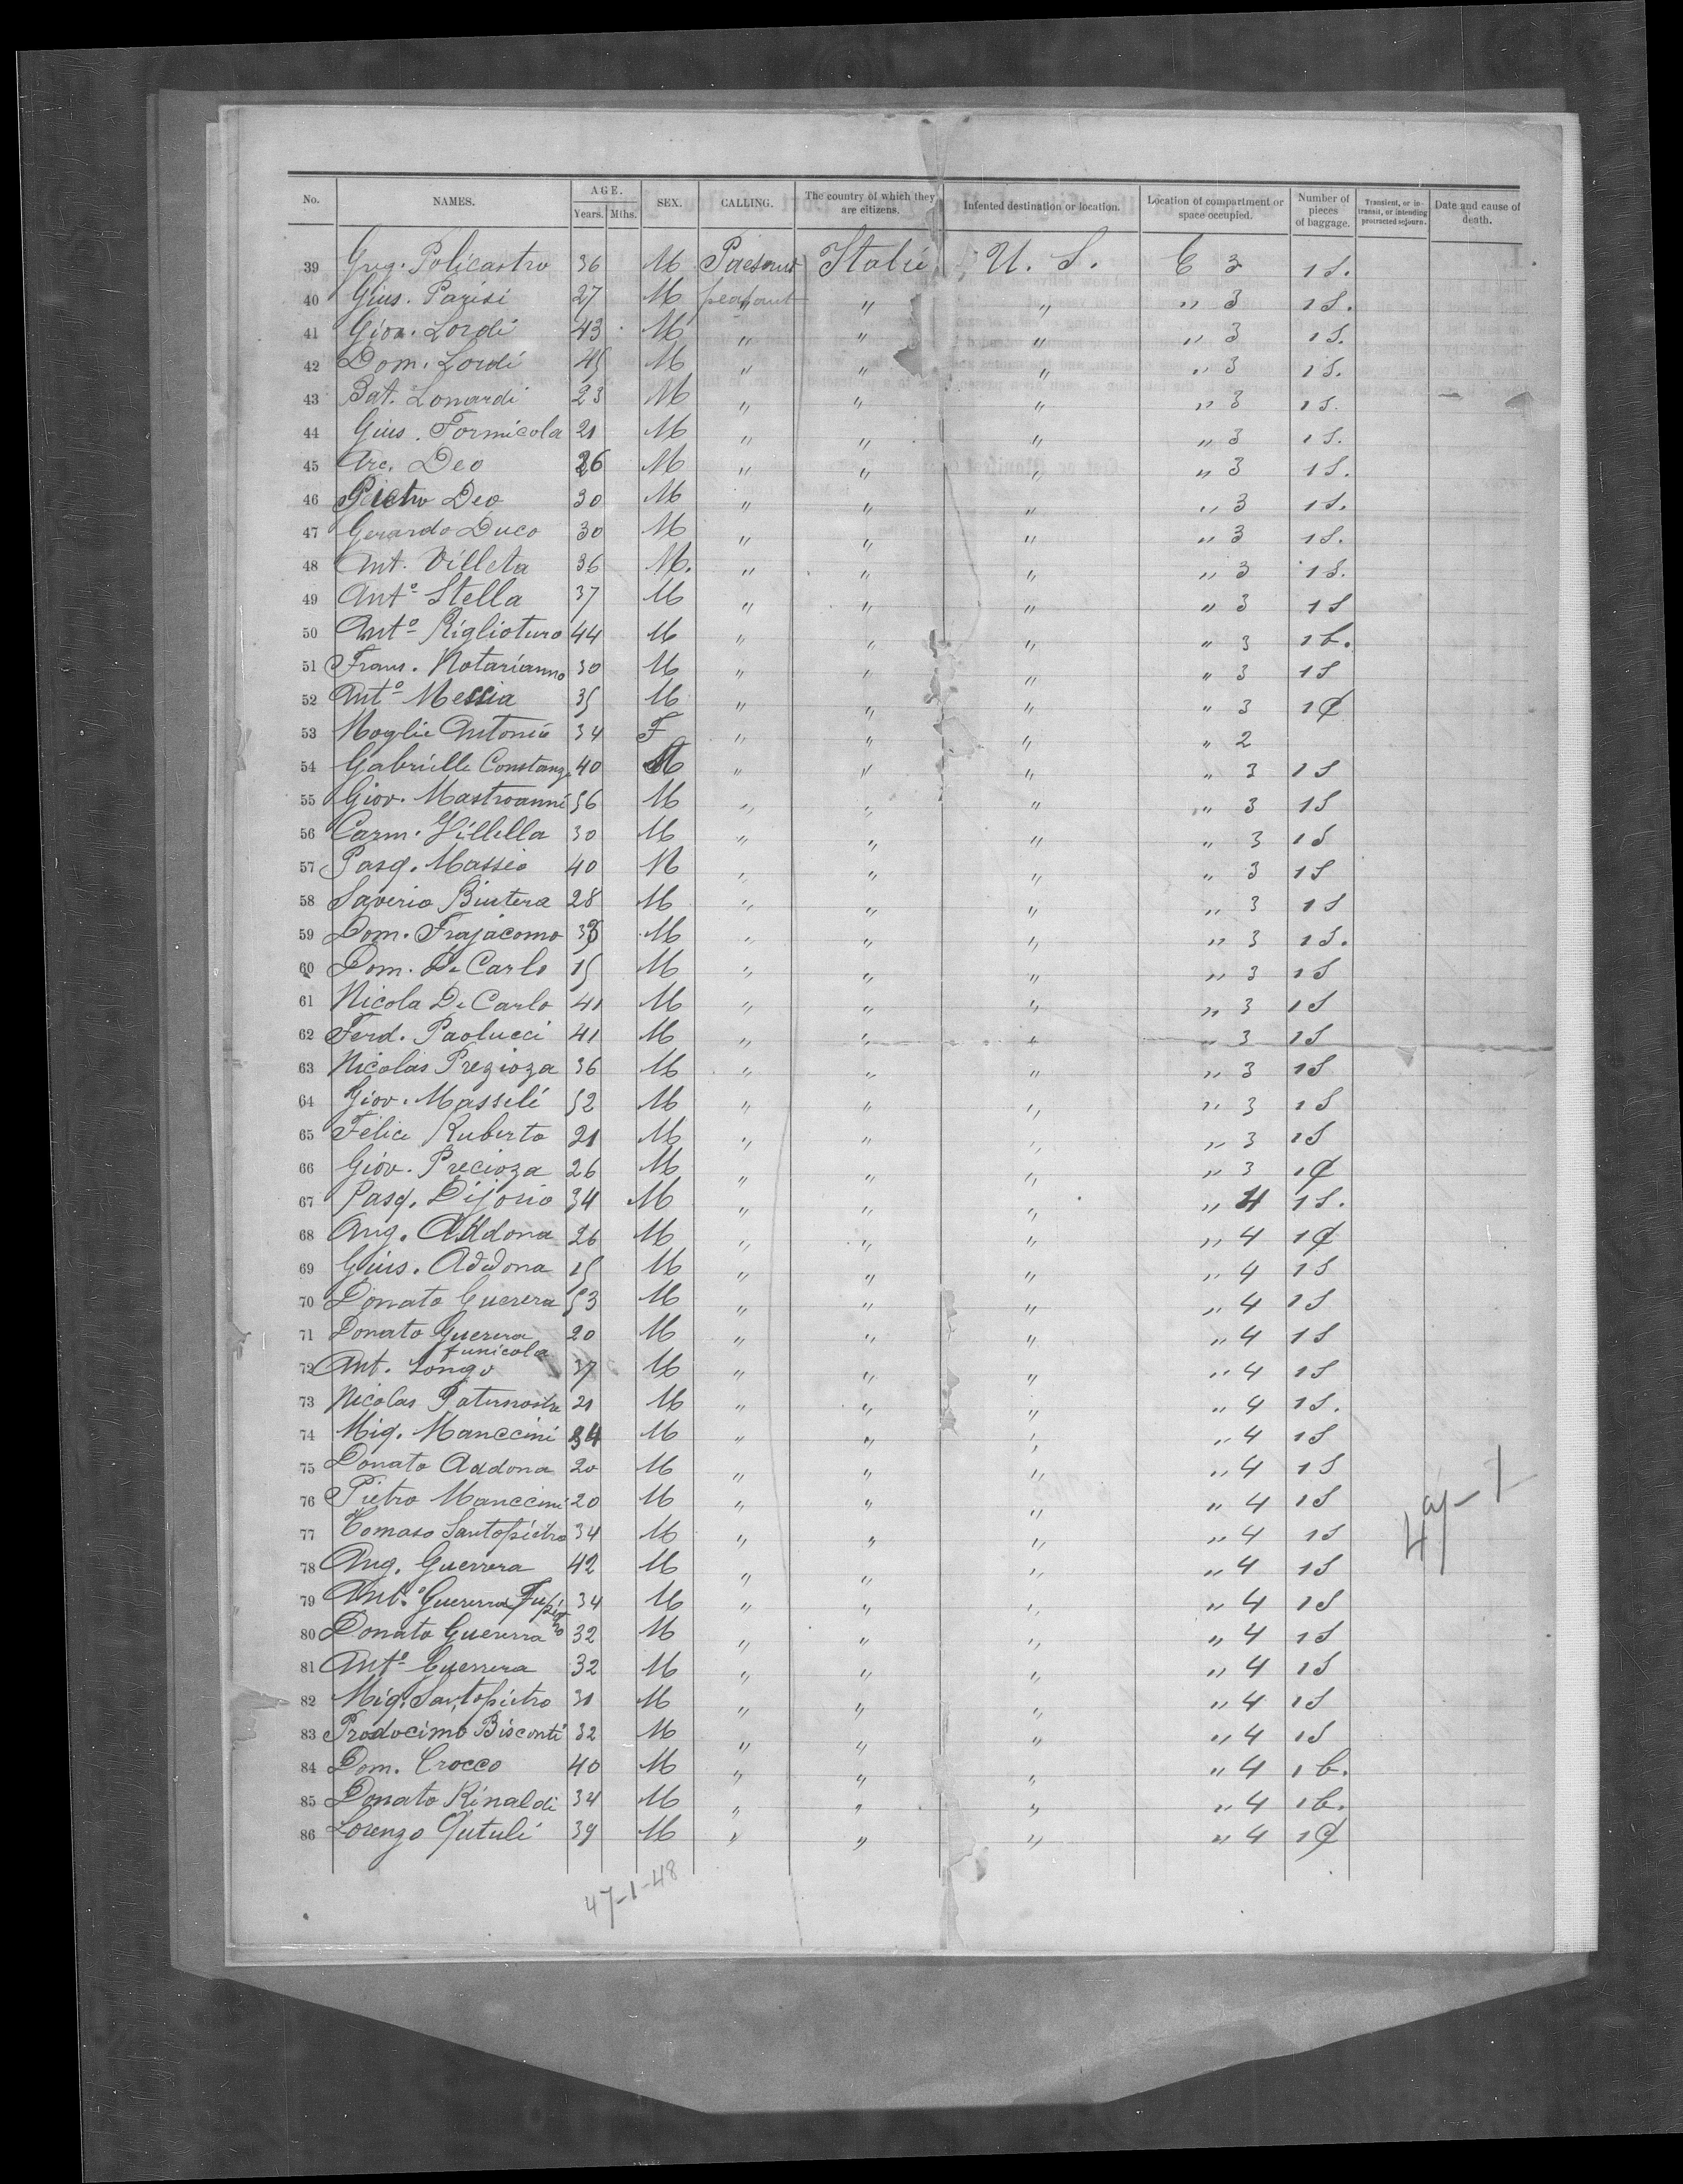 No. NAMES. AGE. Years. Mths. SEX. CALLING. The country of which they are citizens. Intented destination or location. Location of compartment or space occupied. Number of pieces of baggage. Transient, or in transit, or intending protracted sejourn. Date and cause of death.
39 Greg. Policastro 36 M Paesano Italie U. S. C 3 1 S.
40 Gius. Parisi 27 M peasant " " " 3 1 S.
41 Giov. Lordi 43 M " " " " 3 1 S.
42 Dom. Lordi 45 M " " " " 3 1 S.
43 Bat. Lonardi 23 M " " " " 3 1 S.
44 Gius. Formicola 21 M " " " " 3 1 S.
45 Arc. Deo 26 M " " " " 3 1 S.
46 Pietro Deo 30 M " " " " 3 1 S.
47 Gerardo Duco 30 M " " " " 3 1 S.
48 Ant. Villeta 36 M. " " " " 3 1 S.
49 Antº Stella 37 M " " " " 3 1 S
50 Antº Riglioturo 44 M " " " " 3 1 b.
51 Frans. Notarianno 30 M " " " " 3 1 S
52 Antº Messia 35 M " " " " 3 1 ₵
53 Moglie Antonio 34 F " " " " 2
54 Gabrielle Constanzo 40 M " " " " 3 1 S
55 Giov. Mastroanni 56 M " " " " 3 1 S
56 Carm. Villella 30 M " " " " 3 1 S
57 Pasq. Massio 40 M " " " " 3 1 S
58 Saverio Biutera 28 M " " " " 3 1 S
59 Dom. Frajacomo M " " " " 3 1 S.
60 Dom. De Carlo 15 M " " " " 3 1 S
61 Nicola De Carlo 41 M " " " " 3 1 S
62 Ferd. Paolucci 41 M " " " " 3 1 S
63 Nicolas Prezioza 36 M " " " " 3 1 S
64 Giov. Massili 52 M " " " " 3 1 S
65 Felice Ruberto 21 M " " " " 3 1 S
66 Giov. Precioza 26 M " " " " 3 1 ₵
67 Pasq. Dijorio 34 M " " " " 4 1 S.
68 Ang. Addona 26 M " " " " 4 1 ₵
69 Gius. Addona 15 M " " " " 4 1 S
70 Donato Guerera 53 M " " " " 4 1 S
71 Donato Guerera 20 M " " " " 4 1 S
funicola
72 Ant. Longo 37 M " " " " 4 1 S
73 Nicolas Paternostra 21 M " " " " 4 1 S.
74 Mig. Manccini 34 M " " " " 4 1 S
75 Donato Addona 20 M " " " " 4 1 S
76 Pietro Manccini 20 M " " " " 4 1 S
77 Tomaso Santopietro 34 M " " " " 4 1 S
78 Ang. Guerrera 42 M " " " " 4 1 S
79 Antº Guererra Fu pietro 34 M " " " " 4 1 S
80 Donato Guererra 32 M " " " " 4 1 S
81 Antº Guerrera 32 M " " " " 4 1 S
82 Mig. Santopietro 31 M " " " " 4 1 S
83 Prodocimo Bisconti 32 M " " " " 4 1 S
84 Dom. Crocco 40 M " " " " 4 1 b.
85 Donato Rinaldi 34 M " " " " 4 1 b.
86 Lorenzo Gutuli 39 M " " " " 4 1 ₵
47-1-48